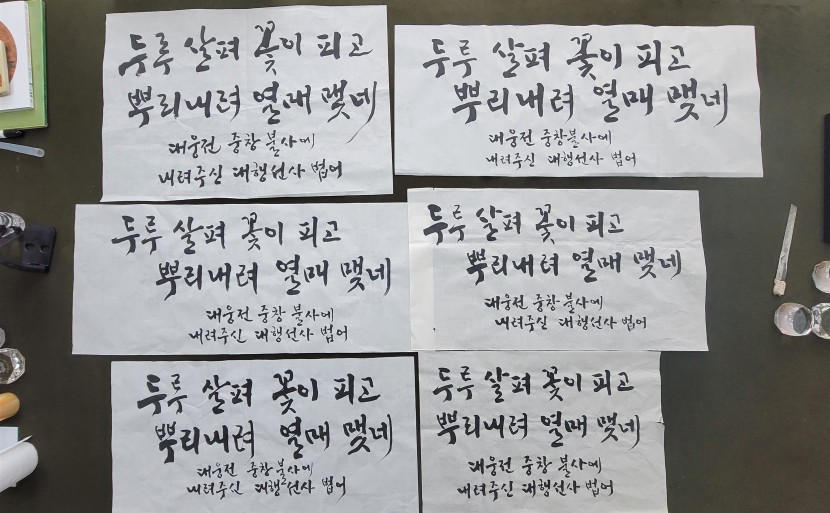 두루 살펴 꽃이 피고
뿌리내려 열매 맺네
대웅전 중창 불사에
내려주신 대행선사 법어
두루 살펴 꽃이 피고
뿌리내려 열매 맺네
대웅전 중창불사에
내려주신 대행선사 법어
두루 살펴 꽃이 피고
뿌리내려 열매 맺네
대웅전 중창 불사에
내려주신 대행선사 법어
두루 살펴 꽃이 피고
뿌리내려 열매 맺네
대웅전 중창 불사에
내려주신 대행선사 법어
두루 살펴 꽃이 피고
뿌리내려 열매 맺네
대웅전 중창불사에
내려주신 대행선사 법어
두루 살펴 꽃이 피고
뿌리내려 열매 맺네
대웅전 중창 불사에
내려주신 대행선사 법어